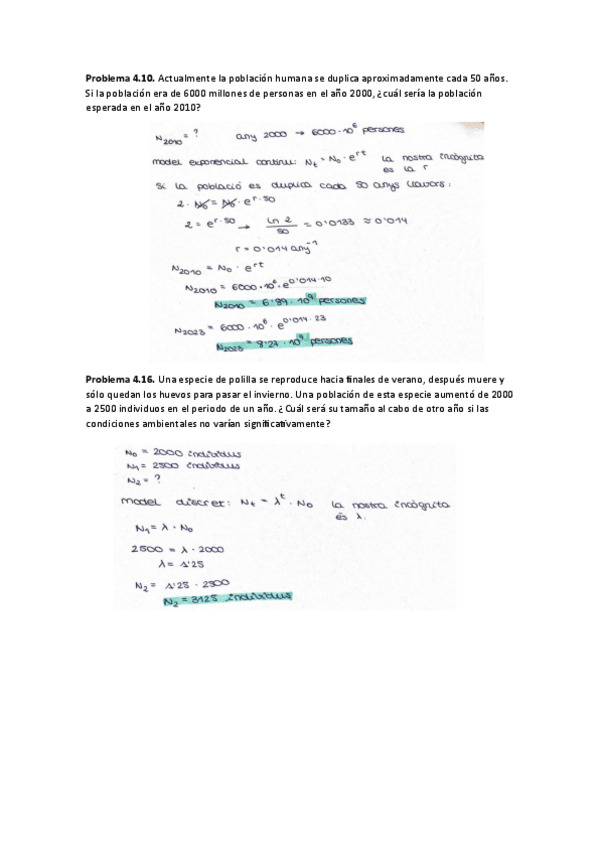 Problema 4.10. Actualmente la población humana se duplica aproximadamente cada 50 años.
Si la población era de 6000 millones de personas en el año 2000, ¿cuál sería la población
esperada en el año 2010?
N2010 = ? any 2000 → 6000·10⁶ persones
model exponencial continu: Nt = N0 · e^rt la nostra incògnita
és la r
Si la població es duplica cada 50 anys llavors:
2 · N0 = N0 · e^r·50
2 = e^r·50 → ln 2 / 50 = 0'0133 ≈ 0'014
r = 0'014 any⁻¹
N2010 = N0 · e^rt
N2010 = 6000·10⁶ · e^0'014·10
N2010 = 6'89 · 10⁹ persones
N2023 = 6000 · 10⁶ · e^0'014·23
N2023 = 8'27 · 10⁹ persones
Problema 4.16. Una especie de polilla se reproduce hacia finales de verano, después muere y
sólo quedan los huevos para pasar el invierno. Una población de esta especie aumentó de 2000
a 2500 individuos en el periodo de un año. ¿Cuál será su tamaño al cabo de otro año si las
condiciones ambientales no varían significativamente?
N0 = 2000 individus
N1 = 2500 individus
N2 = ?
model discret: Nt = λ^t · N0 la nostra incògnita
és λ.
N1 = λ · N0
2500 = λ · 2000
λ = 1'25
N2 = 1'25 · 2500
N2 = 3125 individus